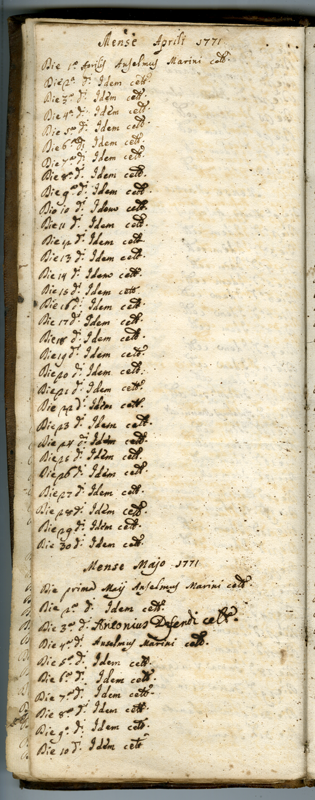 Mense Aprili 1771
Die 1ª Aprilis Anselmus Marini celt.
Die 2ª dⁱ Idem celt.
Die 3ª dⁱ Idem celt.
Die 4ª dⁱ Idem celt.
Die 5ª dⁱ Idem celt.
Die 6ª dⁱ Idem celt.
Die 7ª dⁱ Idem celt.
Die 8ª dⁱ Idem celt.
Die 9ª dⁱ Idem celt.
Die 10 dⁱ Idem celt.
Die 11 dⁱ Idem celt.
Die 12 dⁱ Idem celt.
Die 13 dⁱ Idem celt.
Die 14 dⁱ Idem celt.
Die 15 dⁱ Idem celt.
Die 16 dⁱ Idem celt.
Die 17 dⁱ Idem celt.
Die 18 dⁱ Idem celt.
Die 19 dⁱ Idem celt.
Die 20 dⁱ Idem celt.
Die 21 dⁱ Idem celt.
Die 22 dⁱ Idem celt.
Die 23 dⁱ Idem celt.
Die 24 dⁱ Idem celt.
Die 25 dⁱ Idem celt.
Die 26 dⁱ Idem celt.
Die 27 dⁱ Idem celt.
Die 28 dⁱ Idem celt.
Die 29 dⁱ Idem celt.
Die 30 dⁱ Idem celt.
Mense Majo 1771
Die prima Maij Anselmus Marini celt.
Die 2ª dⁱ Idem celt.
Die 3ª dⁱ Antonius Defendi celt.
Die 4ª dⁱ Anselmus Marini celt.
Die 5ª dⁱ Idem celt.
Die 6ª dⁱ Idem celt.
Die 7ª dⁱ Idem celt.
Die 8ª dⁱ Idem celt.
Die 9ª dⁱ Idem celt.
Die 10 dⁱ Idem celt.